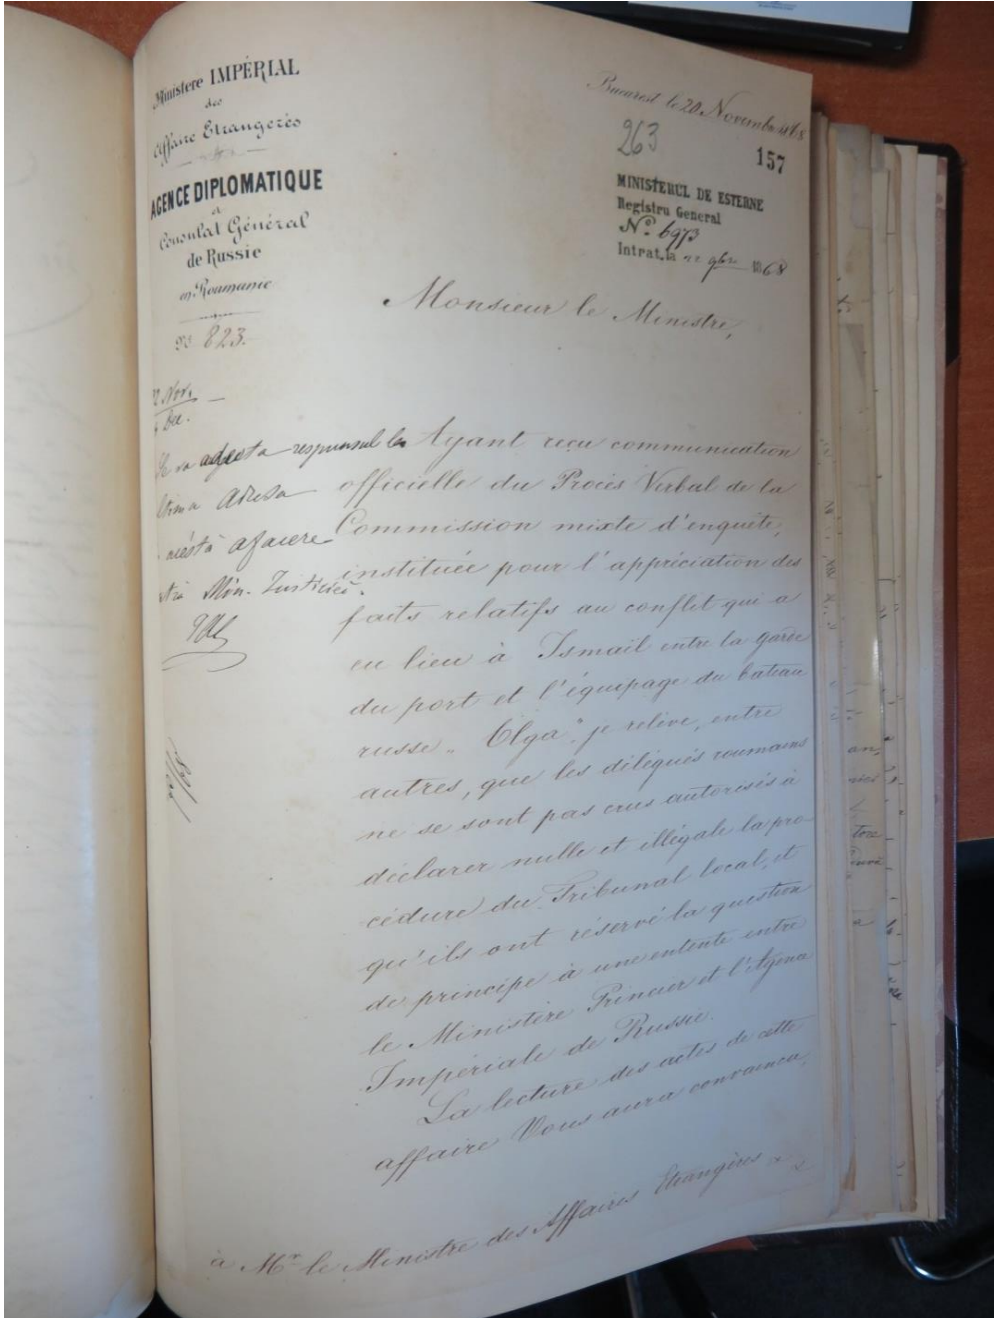 Ministère IMPÉRIAL
des
Affaire Etrangères
AGENCE DIPLOMATIQUE
&
Consulat Général
de Russie
en Roumanie
No 823.
Bucarest le 20 Novembre 1868
263
157
MINISTERUL DE ESTERNE
Registru General
No. 6973
Intrat. la 22 9bre 1868
Monsieur le Ministre,
22 Nov.
4 Dec.
Se va adasta responsul la
urma adresa
acésta afacere
Min. Justiciei.
Ayant reçu communication
officielle du Procès Verbal de la
Commission mixte d'enquête,
instituée pour l'appréciation des
faits relatifs au conflit qui a
eu lieu à Ismaïl entre la garde
du port et l'équipage du bateau
russe „Olga" je relève, entre
autres, que les délégués roumains
ne se sont pas crus autorisés à
déclarer nulle et illégale la pro-
cédure du Tribunal local, et
qu'ils ont réservé la question
de principe à une entente entre
le Ministère Princier et l'Agence
Impériale de Russie.
La lecture des actes de cette
affaire Vous aura convaincu,
à Mr le Ministre des Affaires Etrangères